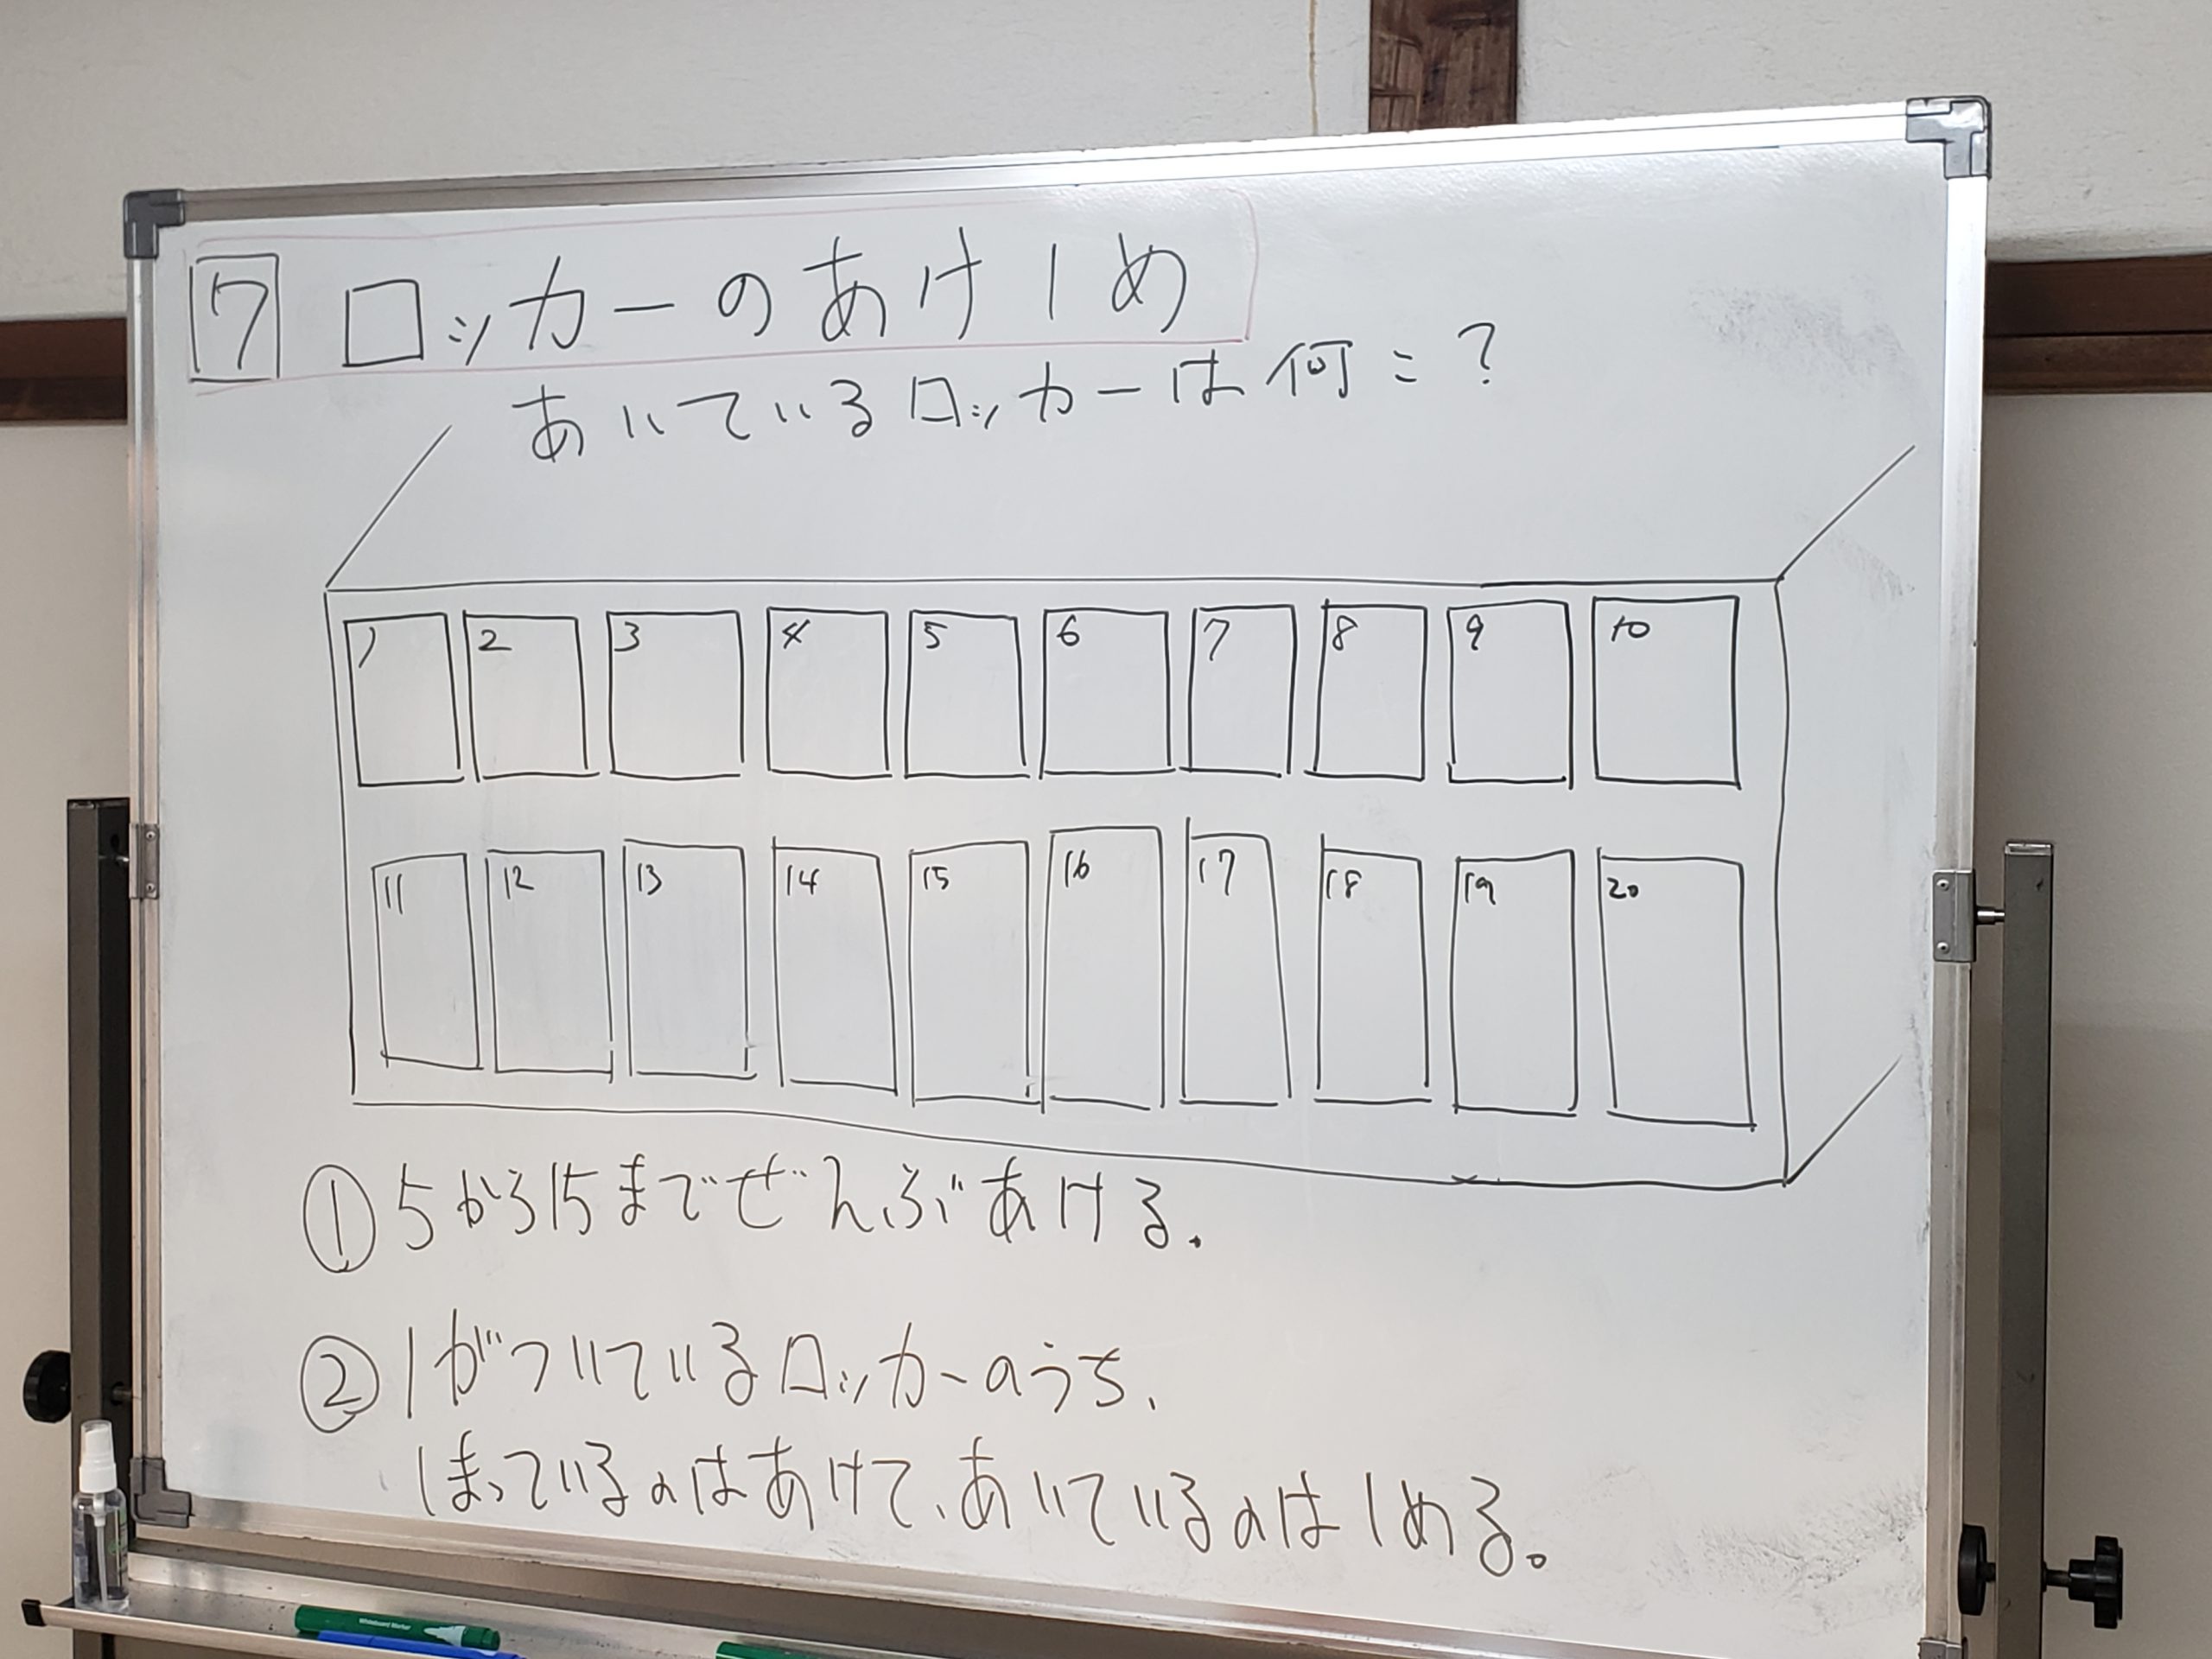 7 ロッカーのあけしめ
あいているロッカーは何こ?
1 2 3 4 5 6 7 8 9 10
11 12 13 14 15 16 17 18 19 20
① 5から15までぜんぶあける.
② 1がついているロッカーのうち、
しまっているのはあけて、あいているのはしめる。
WhiteBoard Marker